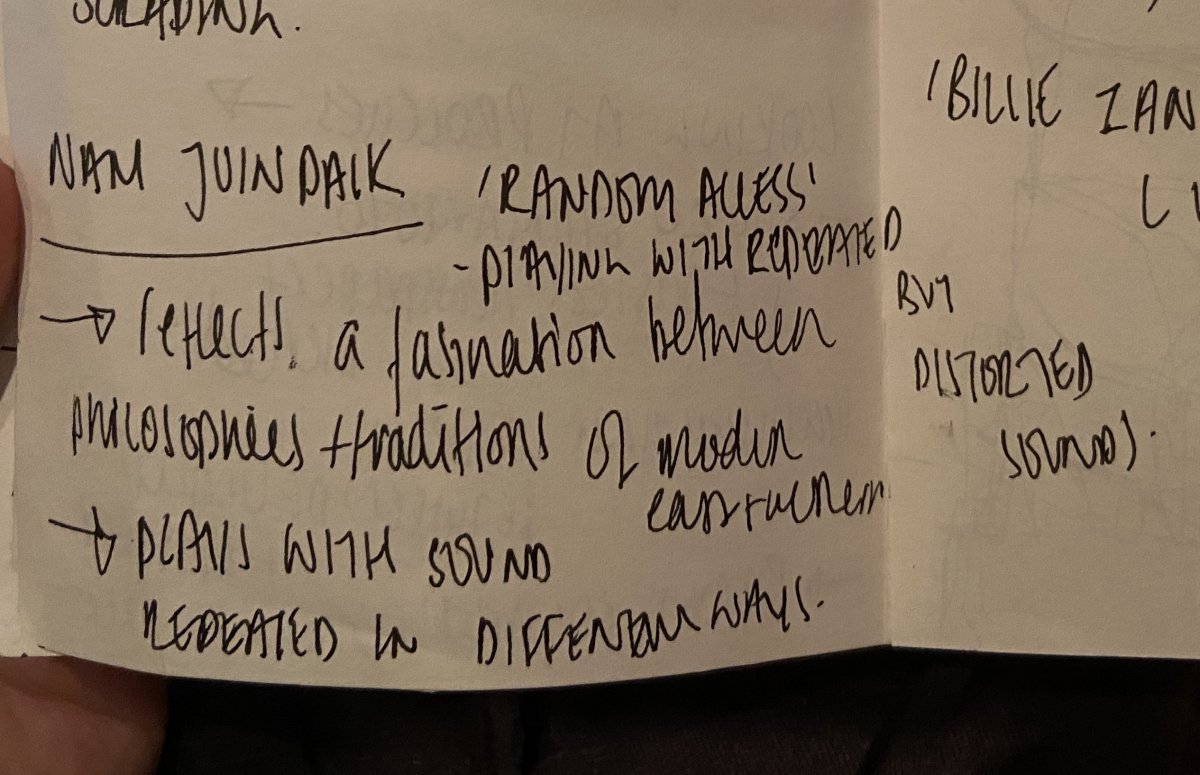 NAM JUIN PAIK
'RANDOM ACCESS'
- PLAYING WITH REPEATED
BUT
DISTORTED
SOUND).
→ reflects a fasination between
philosophies + traditions of modern
→ PLAYS WITH SOUND
REPEATED IN DIFFERENT WAYS.
'BILLIE ZAN